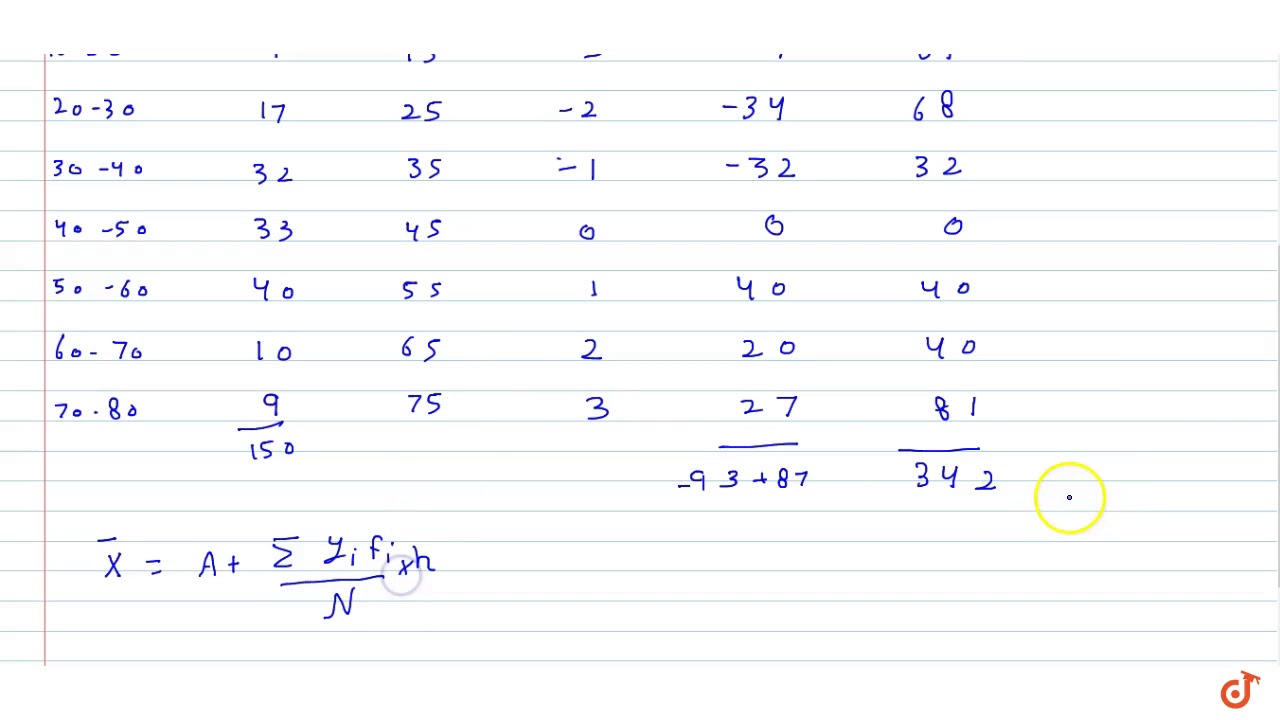 20-30 17 25 -2 -34 68
30-40 32 35 -1 -32 32
40-50 33 45 0 0 0
50-60 40 55 1 40 40
60-70 10 65 2 20 40
70-80 9 75 3 27 81
150
-93+87 342
X̄ = A + Σ yi fi xh
N